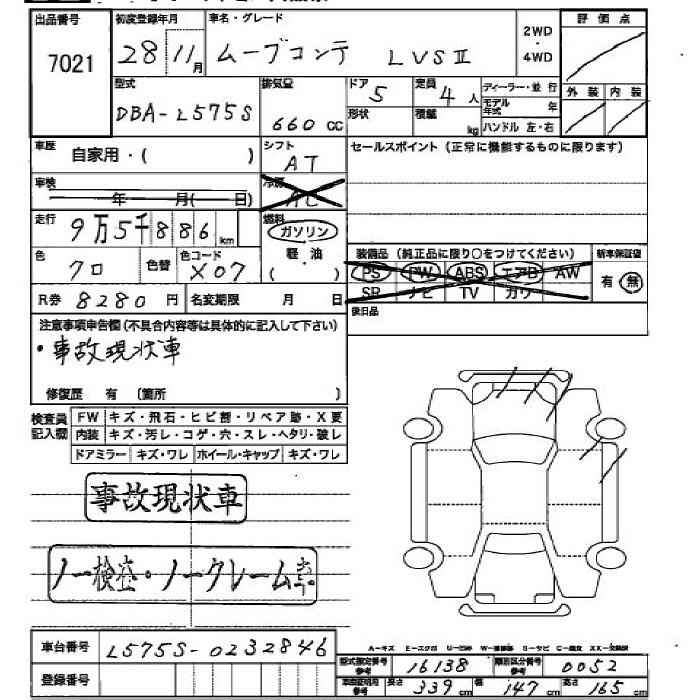 出品番号 7021
初度登録年月 28 11月
車名・グレード ムーブコンテ LVSⅡ
2WD・4WD
評価点
外装 内装
型式 DBA-L575S
排気量 660cc
ドア 5
形状
定員 4人
積載 kg
ディーラー・並行
モデル年式 年
ハンドル 左・右
車歴 自家用・( )
シフト AT
セールスポイント(正常に機能するものに限ります)
車検 年 月( 日)
冷房 AC
走行 9万5千886km
燃料 ガソリン 軽・油 ( )
色 クロ
色替
色コード X07
装備品(純正品に限り○をつけてください)
PS PW ABS エアB AW
SR ナビ TV カワ
新車保証書 有 無
R券 8280円
名変期限 月 日
後日品
注意事項申告欄(不具合内容等は具体的に記入して下さい)
・事故現状車
修復歴 有 (箇所 )
検査員記入欄
FW キズ・飛石・ヒビ割・リペア跡・X要
内装 キズ・汚レ・コゲ・穴・スレ・ヘタリ・破レ
ドアミラー キズ・ワレ ホイール・キャップ キズ・ワレ
事故現状車
ノー検査・ノークレーム車
車台番号 L575S-0232846
登録番号
A-キズ E-エクボ U-凹み W-補修跡 S-サビ C-腐食 XX-交換済
型式指定番号 参考 16138
類別区分番号 参考 0052
車庫証明用 参考 長さ 339cm 幅 147cm 高さ 165cm